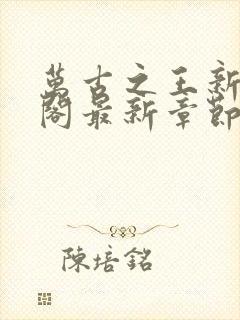 萬古之王新
閣最新章節
陳培銘